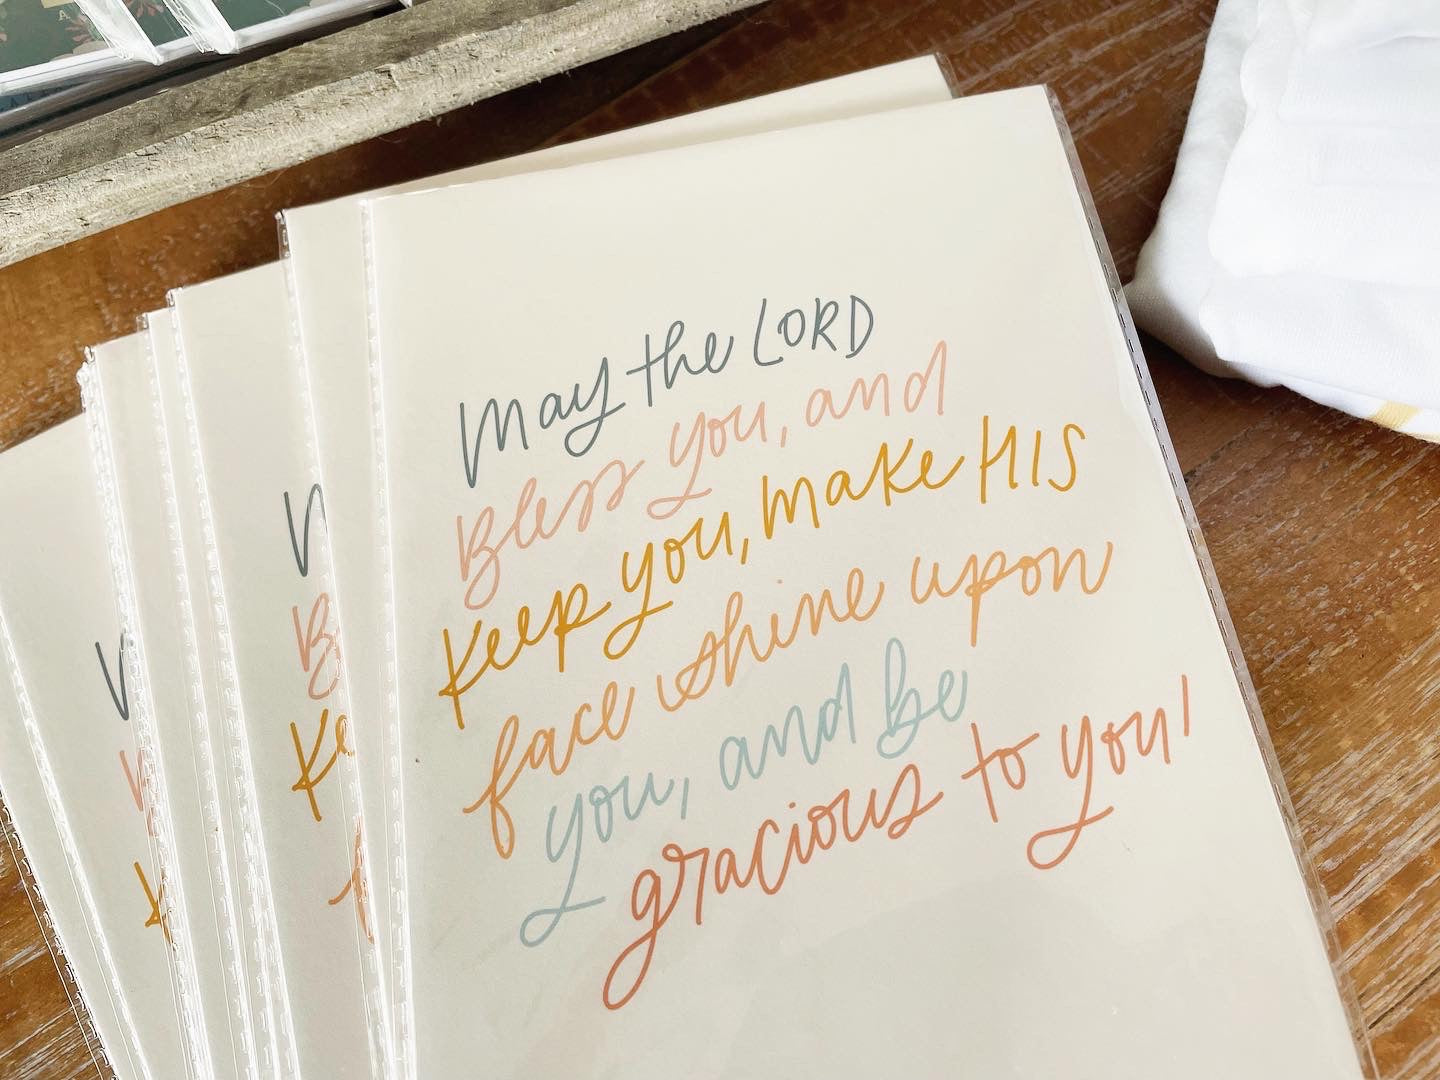 May the LORD
Bless you, and
Keep you, make HIS
face shine upon
you, and be
gracious to you!